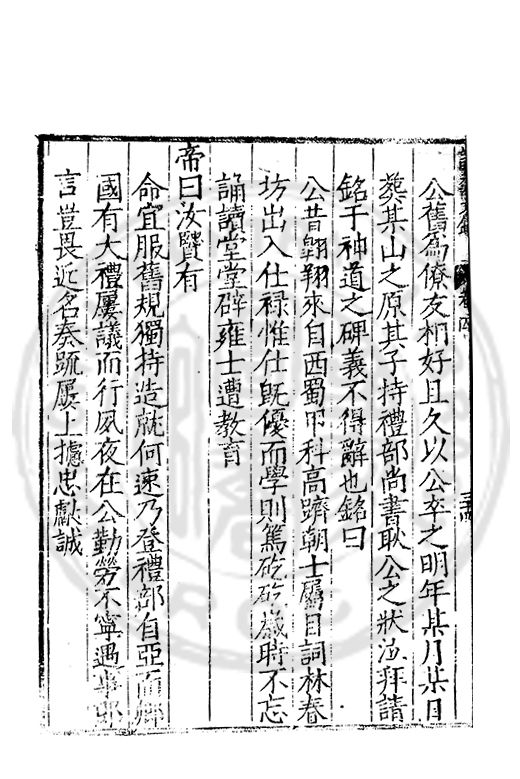 公舊為僚友相好且久以公卒之明年某月某日
葬某山之原其子持禮部尚書耿公之狀泣拜請
銘于神道之碑義不得辭也銘曰
公昔翱翔來自西蜀甲科高躋朝士屬目詞林春
坊出入仕禄惟仕既優而學則篤矻矻歲時不忘
誦讀堂堂辟雍士遭教育
帝曰汝賢有
命宜服舊規獨持造就何速乃登禮部自亞而卿
國有大禮屢議而行夙夜在公勤勞不寧遇事
言豈畏近名奏䟽屢上攄忠獻誠